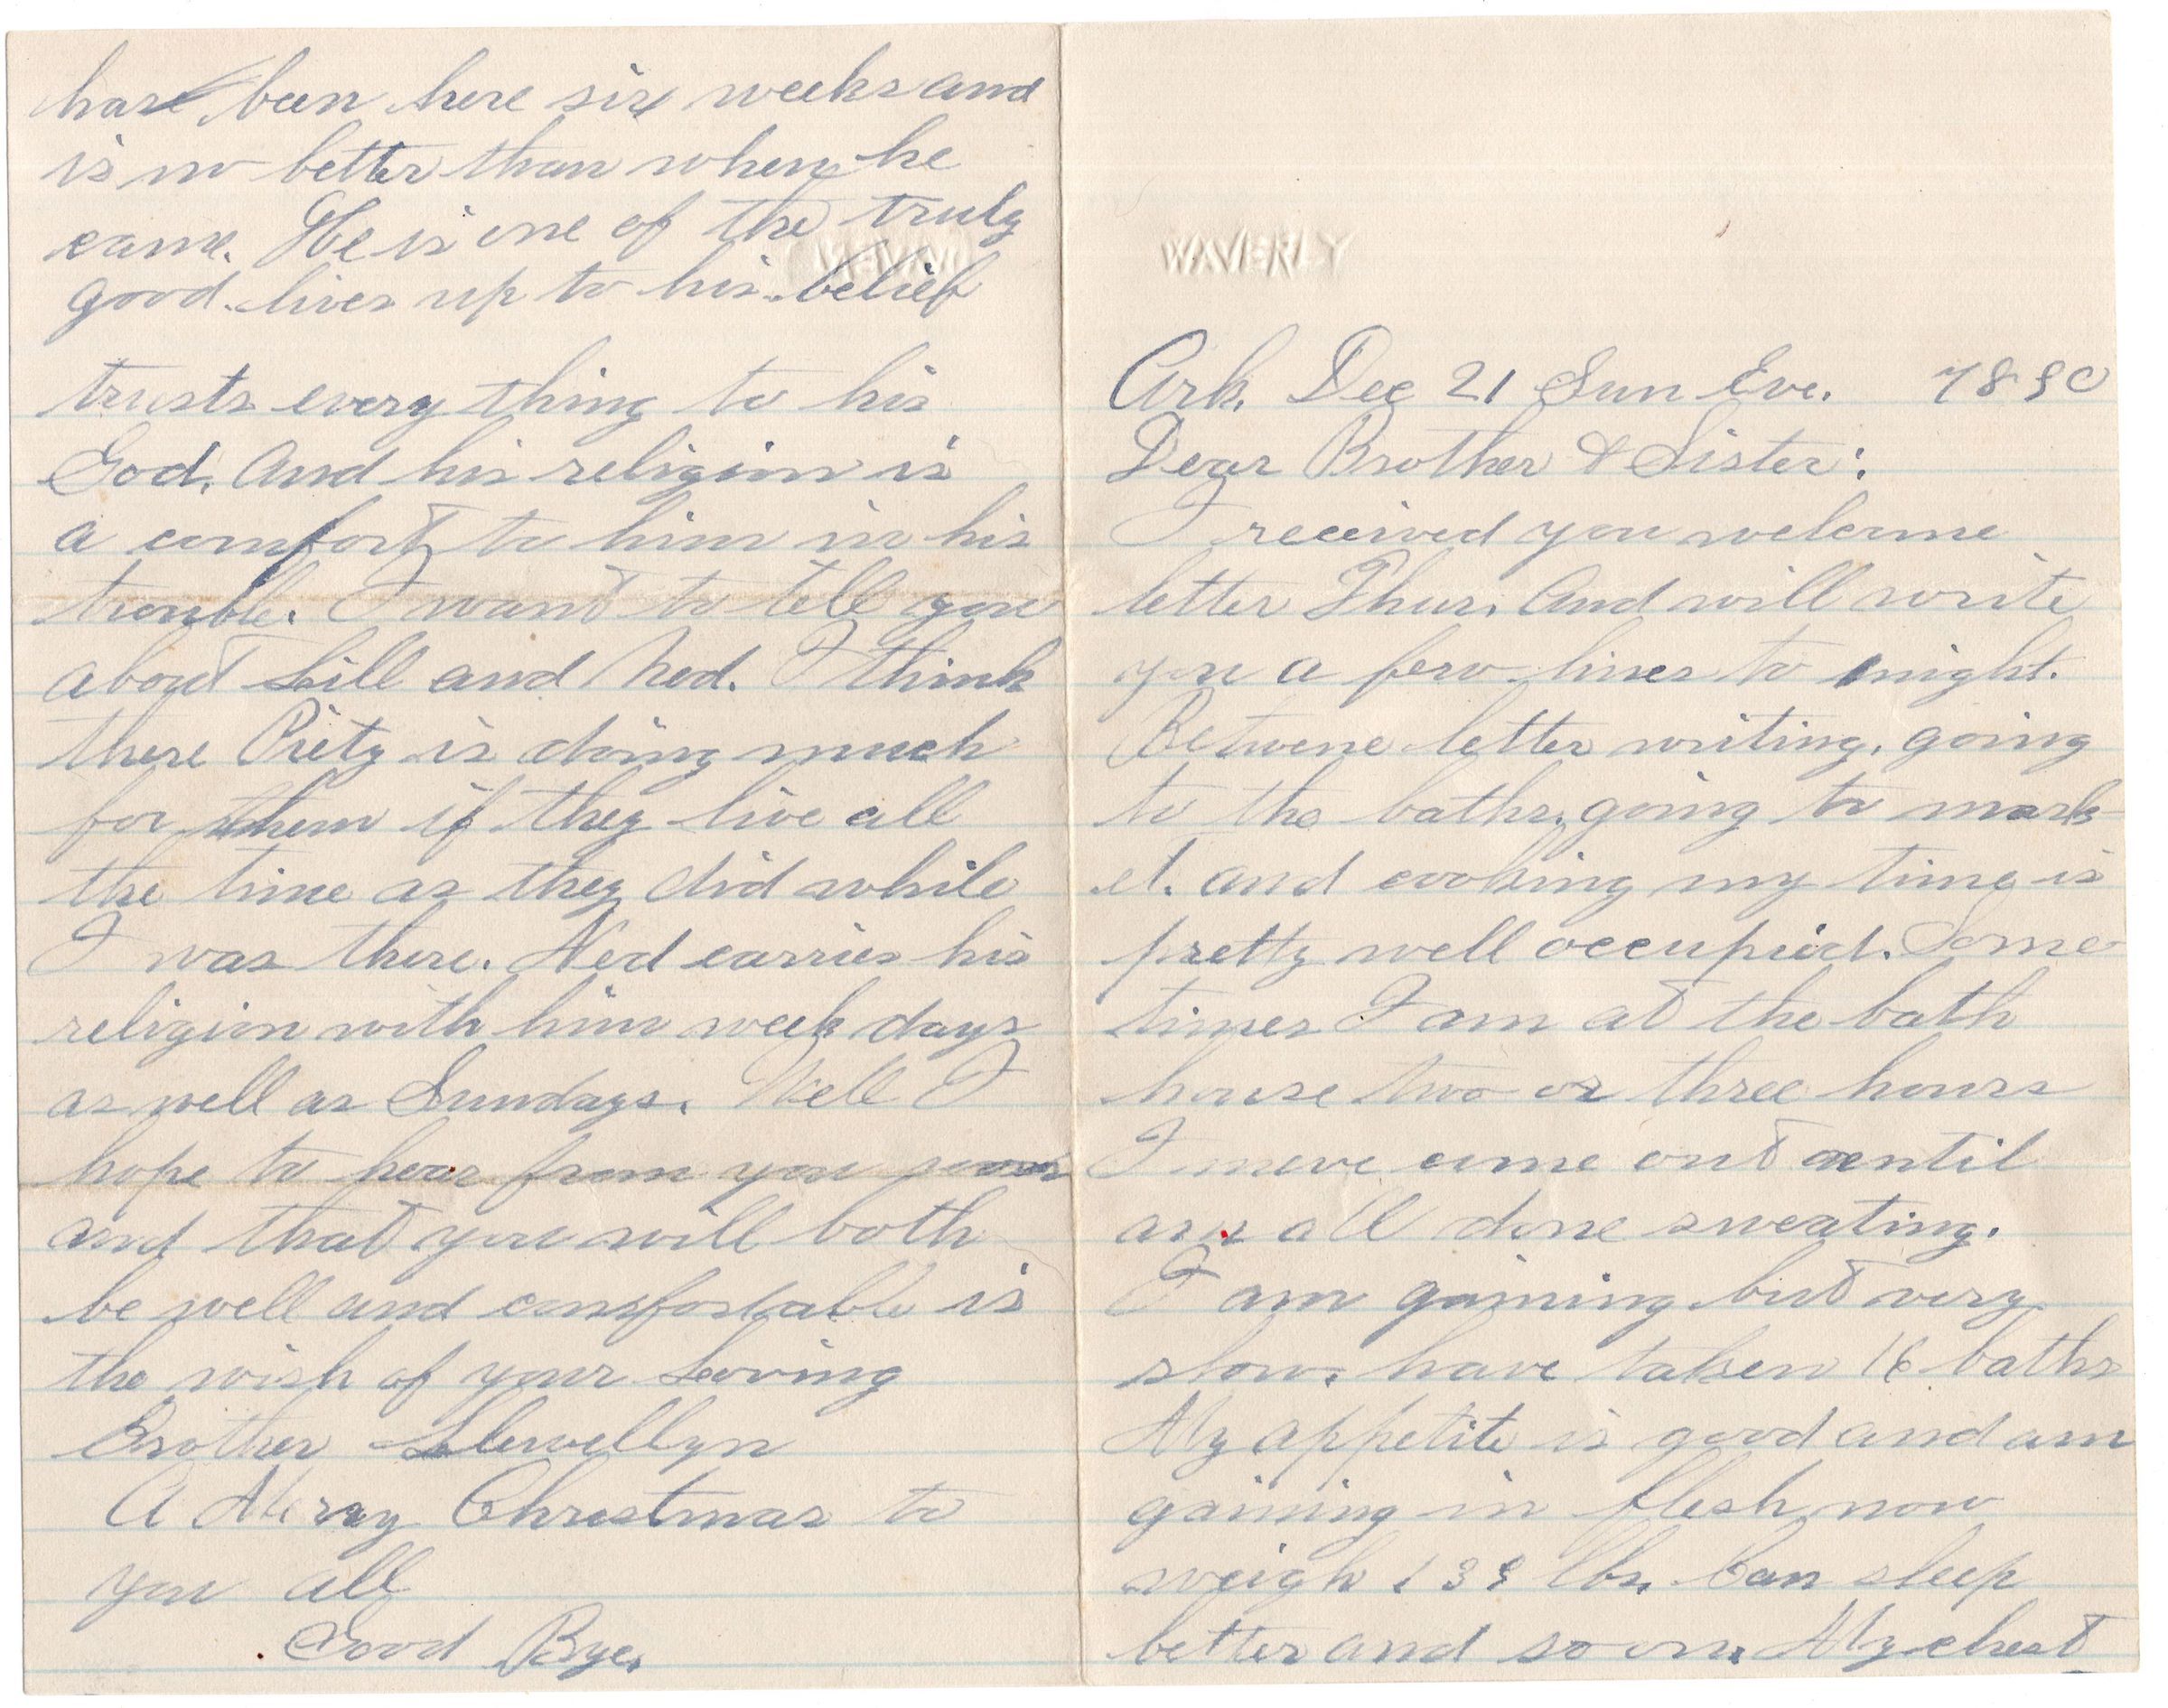 WAVERLY
Ark. Dec 21 Sun Eve. 1890
Dear Brother & Sister:
I received you welcome
letter Thur. And will write
you a few lines to night.
Betwene letter writing, going
to the baths, going to mark
et. and cooking my time is
pretty well occupied. Some
times I am at the bath
house two or three hours
I neve come out until
am all done sweating.
I am gaining but very
slow. have taken 16 baths
My appetite is good and am
gaining in flesh now
weigh 139 lbs. Can sleep
better and so on. My chest
have been here six weeks and
is no better than when he
came. He is one of the truly
good. lives up to his belief
trusts every thing to his
God. And his religion is
a comfort to him in his
trouble. I want to tell you
about Lill and Ned. I think
there Piety is doing much
for them if they live all
the time as they did while
I was there. Ned carries his
religion with him week days
as well as Sundays. Well I
hope to hear from you soon
and that you will both
be well and comfortable is
the wish of your Loving
Brother Llewellyn
A Merry Christmas to
you all
Good Bye.